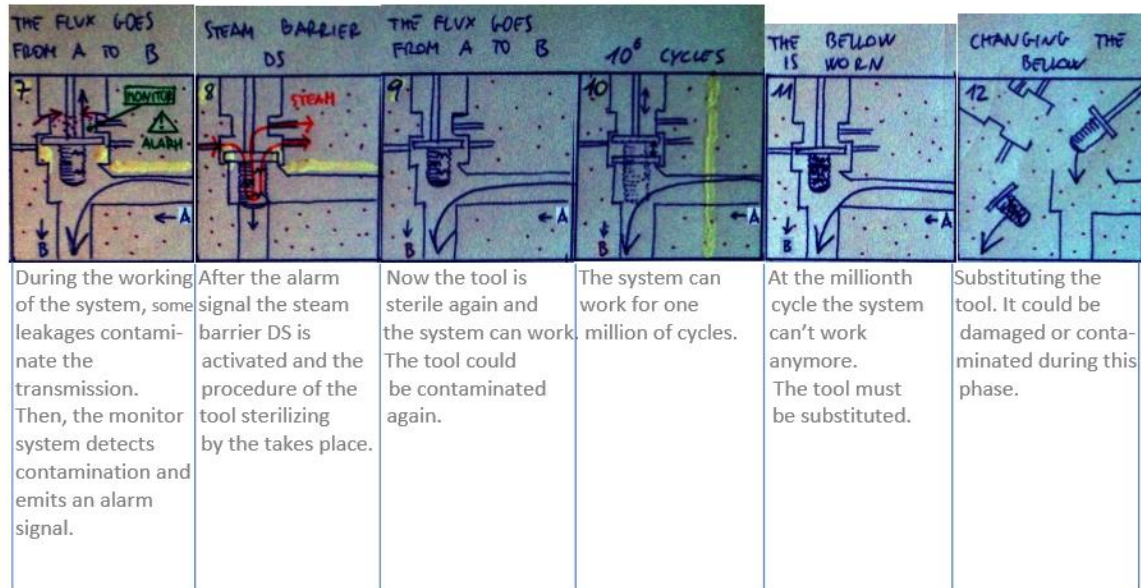 THE FLUX GOES
FROM A TO B
7
MONITOR
ALARM
A
B
During the working
of the system, some
leakages contami-
nate the
transmission.
Then, the monitor
system detects
contamination and
emits an alarm
signal.
STEAM BARRIER
DS
8
STEAM
After the alarm
signal the steam
barrier DS is
activated and the
procedure of the
tool sterilizing
by the takes place.
THE FLUX GOES
FROM A TO B
9
A
B
Now the tool is
sterile again and
the system can work.
The tool could
be contaminated
again.
10⁶ CYCLES
10
A
B
The system can
work for one
million of cycles.
THE BELLOW
IS WORN
11
A
B
At the millionth
cycle the system
can't work
anymore.
The tool must
be substituted.
CHANGING THE
BELLOW
12
Substituting the
tool. It could be
damaged or conta-
minated during this
phase.